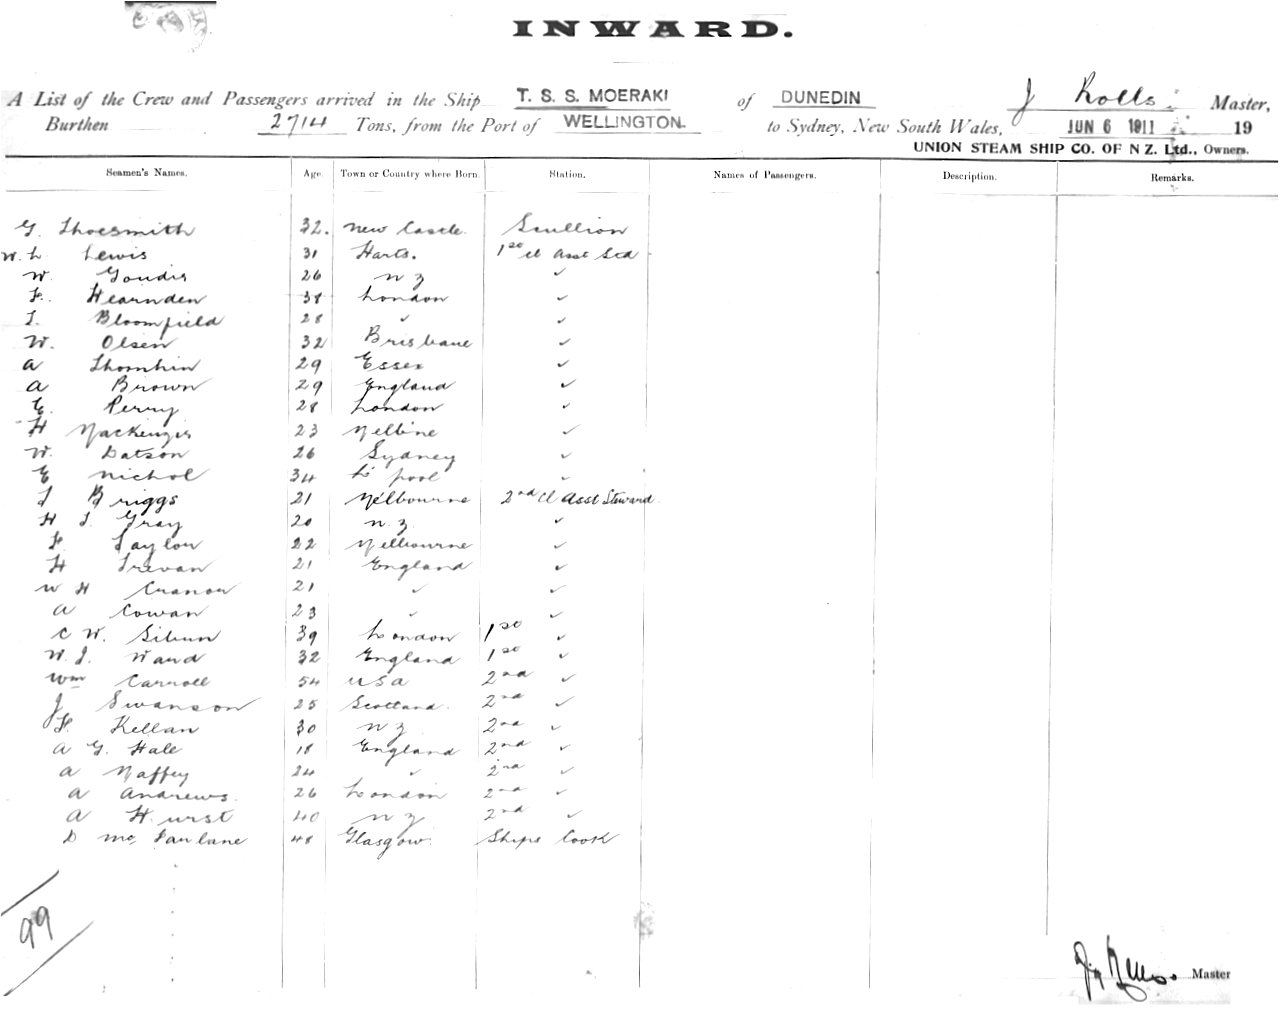 INWARD.
A List of the Crew and Passengers arrived in the Ship T. S. S. MOERAKI of DUNEDIN J Rolls Master,
Burthen 2714 Tons, from the Port of WELLINGTON. to Sydney, New South Wales, JUN 6 1911 19
UNION STEAM SHIP CO. OF N Z. Ltd., Owners.
Seamen's Names. Age. Town or Country where Born. Station. Names of Passengers. Description. Remarks.
G. Shoesmith 32. New Castle. Scullion
W. L Lewis 31 Harts. 1st cl Asst Std
W. Goudie 26 N Z ✓
F. Hearnden 38 London ✓
T. Bloomfield 28 ✓ ✓
W. Olsen 32 Brisbane ✓
A 29 Essex ✓
A Brown 29 England ✓
E. Perry 28 London ✓
H Mackenzie 23 Melbine ✓
W. Datson 26 Sydney ✓
E Nichol 34 L' pool ✓
J Briggs 21 Melbourne 2nd Cl Asst Steward
H J. Gray 20 N. Z. ✓
F. Taylor 22 Melbourne ✓
H Trevan 21 England ✓
W H 21 ✓ ✓
A Cowan 23 ✓ ✓
C W. 39 London 1st ✓
W. J. Ward 32 England 1st ✓
Wm Carroll 54 USA 2nd ✓
J Swanson 25 Scotland. 2nd ✓
F. Kellan 30 N Z 2nd ✓
A G. Hale 18 England 2nd ✓
A Maffey 24 ✓ 2nd ✓
A Andrews. 26 London 2nd ✓
A Hurst 40 N Z 2nd ✓
D Mc Farlane 48 Glasgow. Ships Cook
99
Master